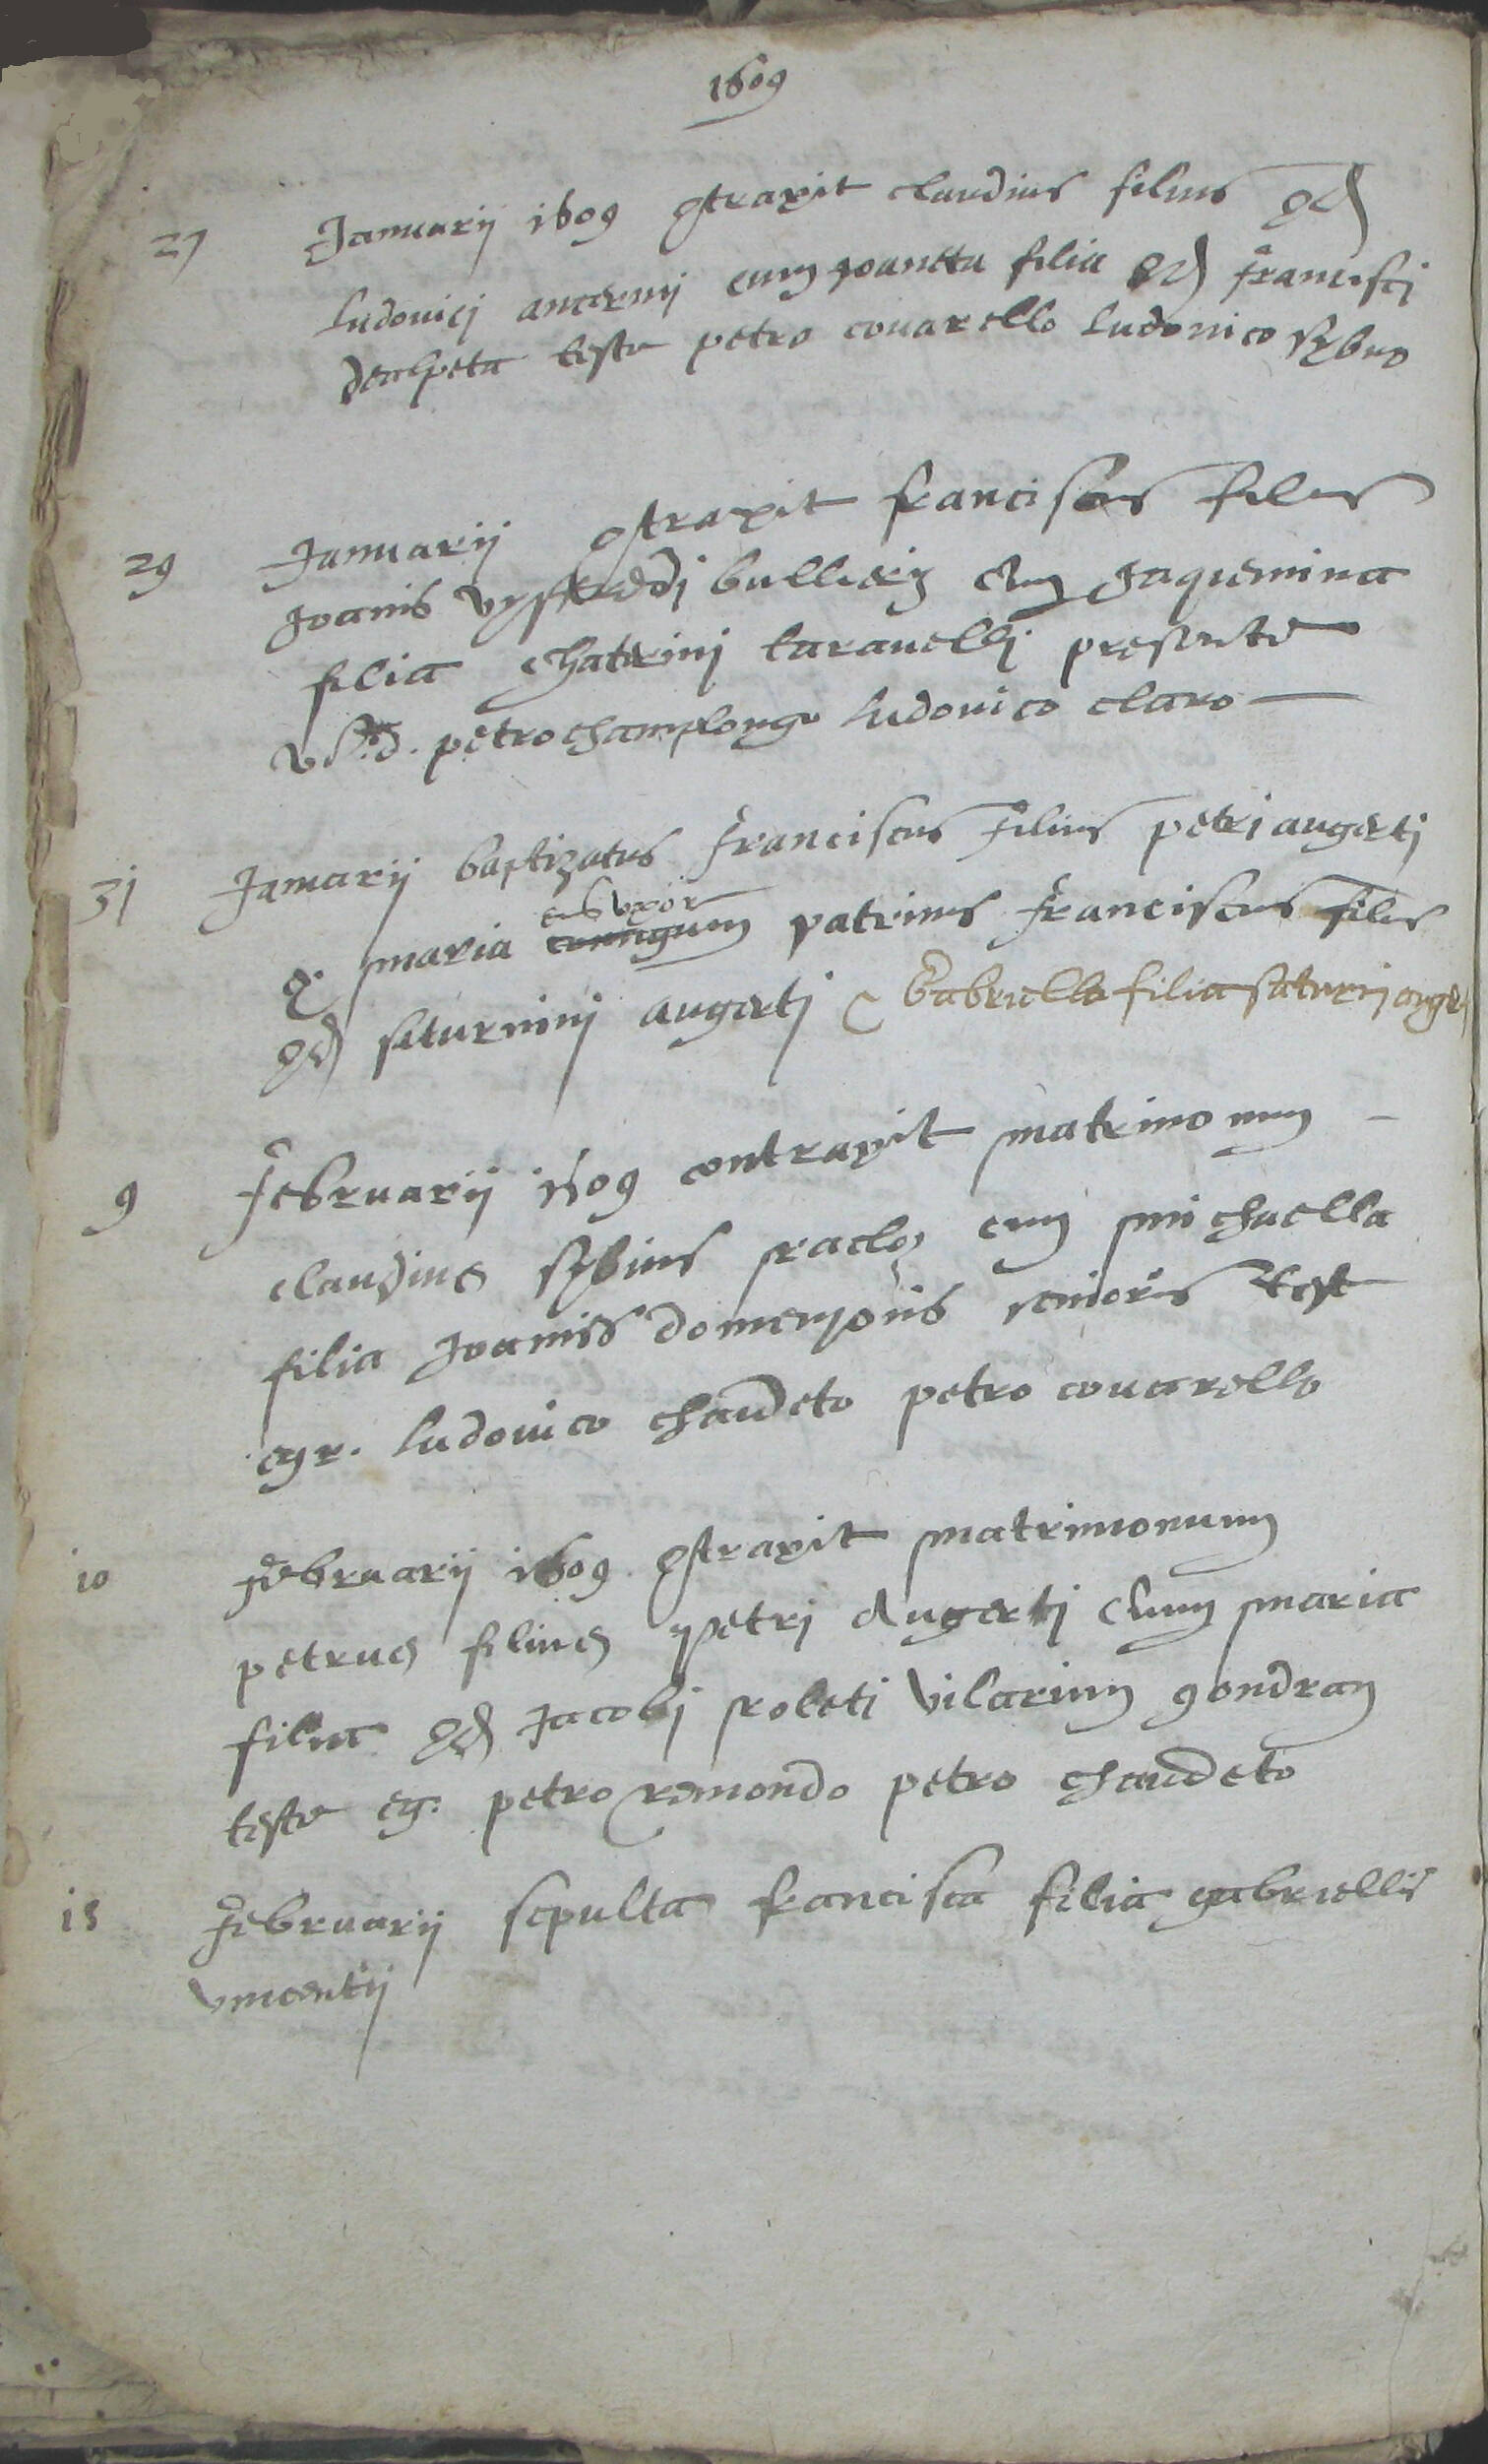 1609
27 Januarij 1609 9traxit claudius filius qd
Ludovicj ancermj cum Joaneta filia qd Francisci
dealpeta teste petro covarello Ludovico sybuo
29 Januarij 9traxit franciscus filius
Joanis bullierij cum Jaquemina
filia Chaterinj taravellj presente
petro champlong Ludovico claro
31 Januarij baptizatus Franciscus filius petri augertj
& maria eius uxor patrinus Franciscus filius
qd saturninj augertj & Gabriella filia saturnj auger
9 Februarij 1609 contraxit matrimonium
claudius sybius cum michaella
filia Joanis senioris teste
egr. Ludovico chaudeto petro covarello
10 Februarij 1609 9traxit matrimonium
petrus filius petri Augertj cum maria
filia qd Jacobj roleti vilarium gondran
teste eg. petro remondo petro chaudeto
15 Februarij sepulta francisca filia gabriellis
vincentij